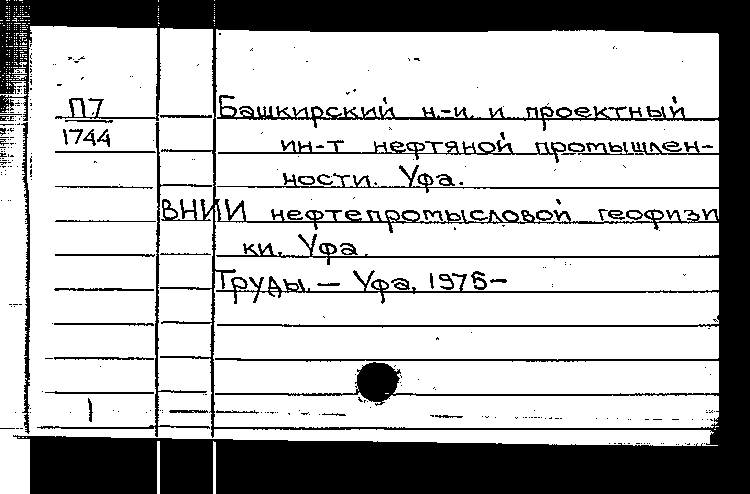 П7
1744
Башкирский н.-и. и проектный
ин-т нефтяной промышлен-
ности. Уфа.
ВНИИ нефтепромысловой геофизи
ки. Уфа.
Труды. — Уфа, 1975—
1